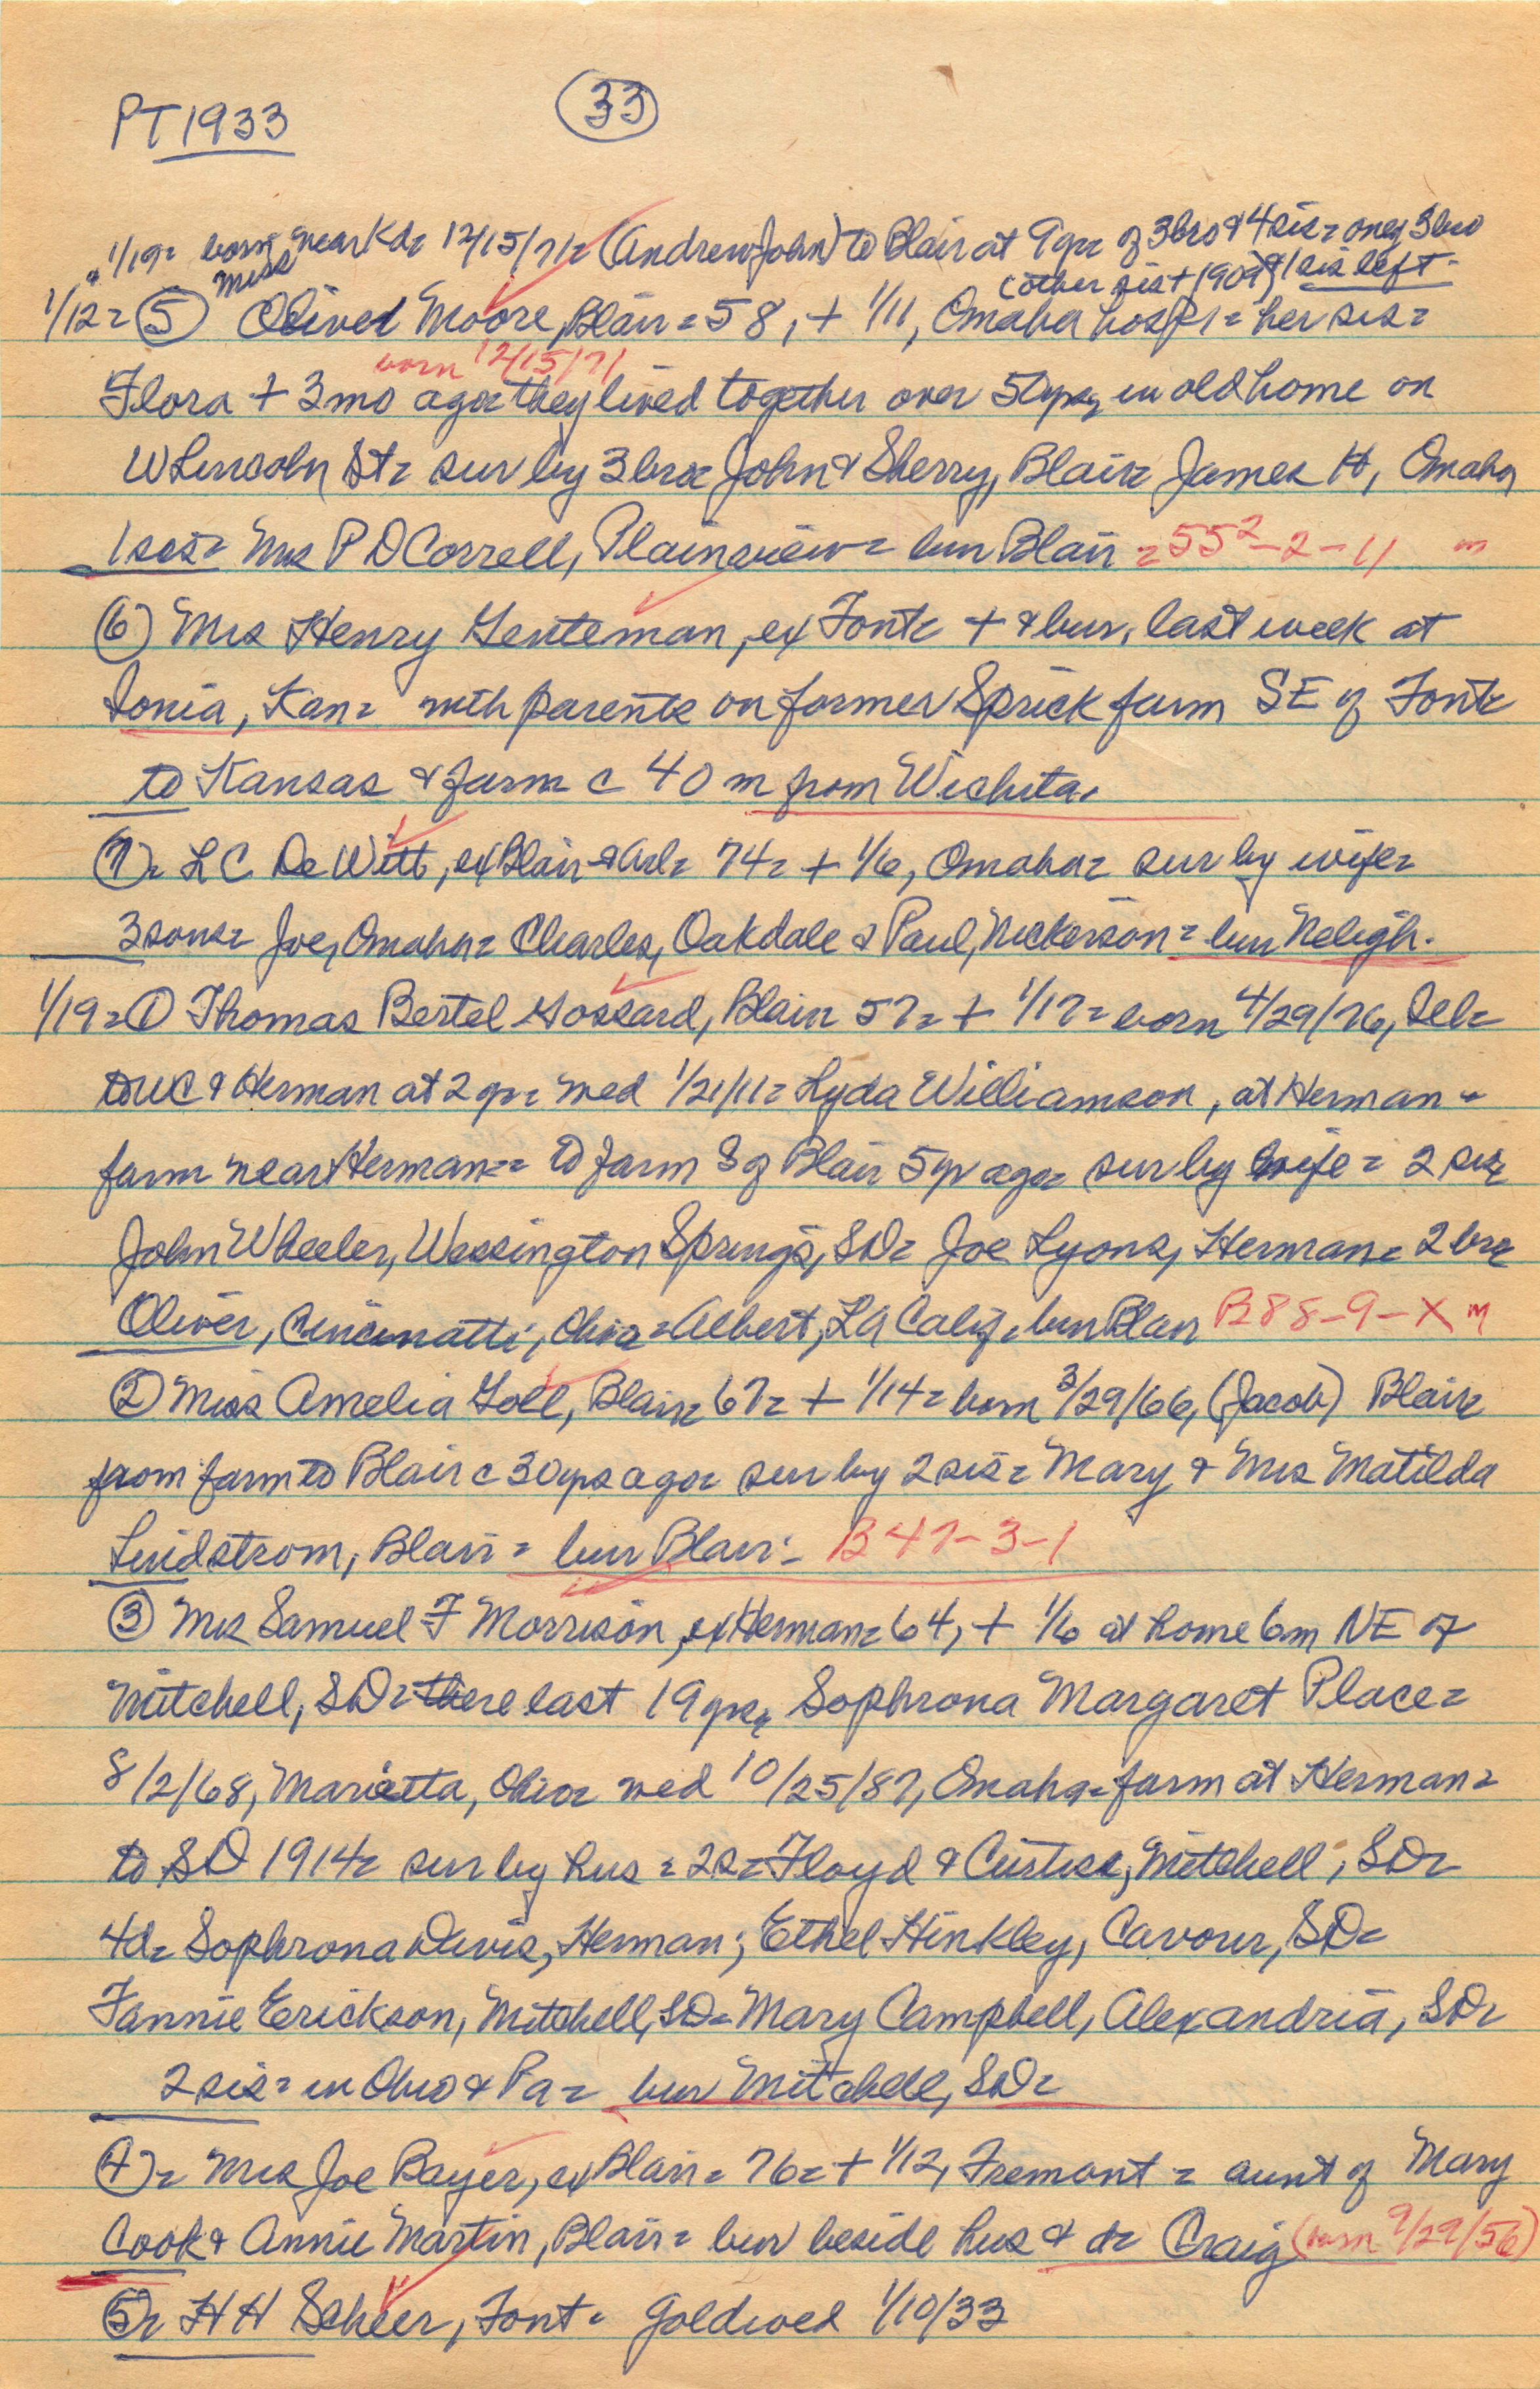 PT 1933
33
" 1/19= born near Kd= 12/15/71= (Andrew John) to Blair at 9yr= of 3 bro & 4 sis= only 3 bro
(other sis + 1909) & 1 sis left-
Miss
1/12= (5) Olive Moore, Blair=58, + 1/11, Omaha hosp= her sis=
born 12/15/71
Flora + 3mo ago= they lived together over 50yrs, in old home on
W Lincoln St= sur by 3 bro= John & Sherry, Blair= James H, Omaha
1 sis= Mrs P D Correll, Plainview= bur Blair = 55²-2-11 m
(6) Mrs Henry Genteman, ex Font= + & bur, last week at
Ionia, Kan= with parents on former Sprick farm SE of Font=
to Kansas & farm c 40 m from Wichita.
(7)= L C De Witt, ex Blair & Arl= 74= + 1/6, Omaha= sur by wife=
3 sons= Joe, Omaha= Charles, Oakdale & Paul, Nickerson= bur Neligh.
1/19= (1) Thomas Bertel Gossard, Blair= 57= + 1/17= born 4/29/76, Ill=
to WC & Herman at 2 yr= wed 1/21/11= Lyda Williamson, at Herman -
farm near Herman= to farm S of Blair 5yr ago= sur by wife = 2 sis=
John Wheeler, Wessington Springs, SD= Joe Lyons, Herman= 2 br=
Oliver, Cincinatti, Ohio= Albert, LA Calif= bur Blair B88-9-X m
(2) Miss Amelia Goll, Blair= 67= + 1/14= born 3/29/66, (Jacob) Blair=
from farm to Blair c 30yrs ago= sur by 2 sis= Mary & Mrs Matilda
Lindstrom, Blair = bur Blair- B 47-3-1
(3) Mrs Samuel F Morrison, ex Herman= 64, + 1/6 at home 6m NE of
Mitchell, SD= there last 19 yrs, Sophrona Margaret Place=
8/2/68, Marietta, Ohio= wed 10/25/87, Omaha= farm at Herman=
to SD 1914= sur by hus = 2s= Floyd & Curtiss, Mitchell, SD=
4d= Sophrona Davis, Herman; Ethel Hinkley, Cavour, SD=
Fannie Erickson, Mitchell, SD= Mary Campbell, Alexandria, SD=
2 sis= in Ohio & Pa= bur Mitchell, SD=
(4)= Mrs Joe Bayer, ex Blair= 76= + 1/12, Fremont = aunt of Mary
Cook & Annie Martin, Blair= bur beside hus & d= Craig (born 9/29/56)
(5)= H H Scheer, Font= Goldwed 1/10/33